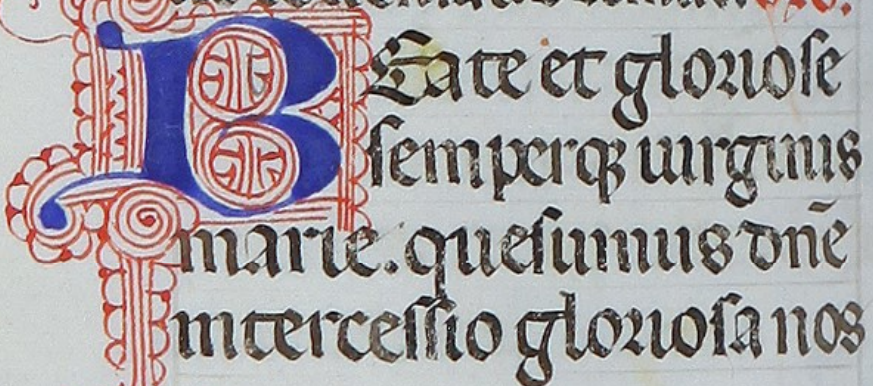 BEate et gloriose
semperqꝫ uirginis
marie. quesumus dn̄e
intercessio gloriosa nos